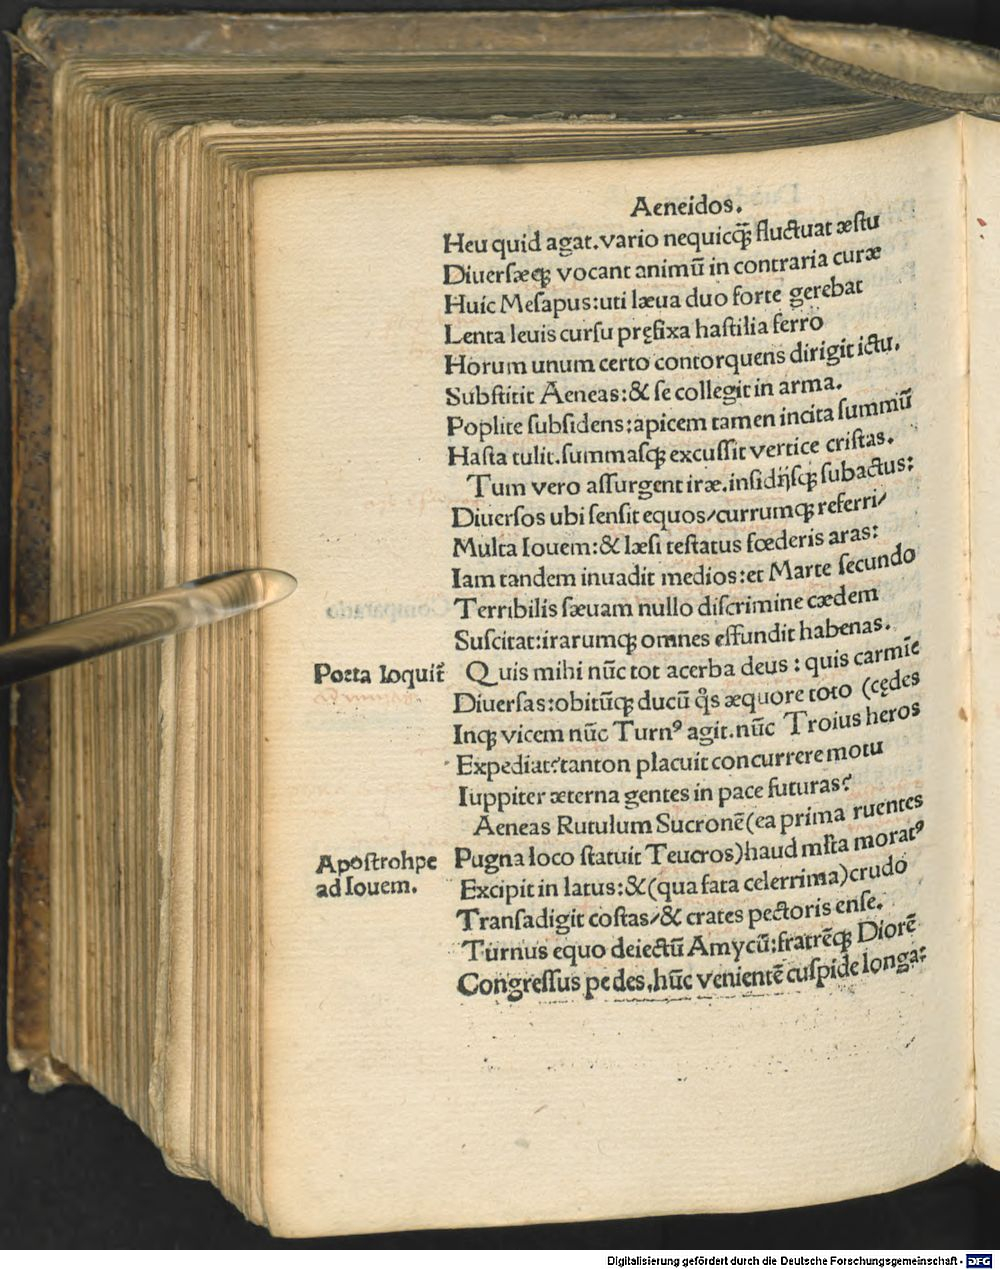 Aeneidos.
Heu quid agat.vario nequicq̃; fluctuat æstu
Diuersæq; vocant animũ in contraria curæ
Huic Mesapus:uti læua duo forte gerebat
Lenta leuis cursu pręfixa hastilia ferro
Horum unum certo contorquens dirigit ictu.
Substitit Aeneas:& se collegit in arma.
Poplite subsidens:apicem tamen incita summũ
Hasta tulit.summasq; excussit vertice cristas.
Tum vero assurgent iræ.insidijsq; subactus:
Diuersos ubi sensit equos/currumq; referri/
Multa Iouem:& læsi testatus fœderis aras:
Iam tandem inuadit medios:et Marte secundo
Terribilis sæuam nullo discrimine cædem
Suscitat:irarumq; omnes effundit habenas.
Poeta loquit̃
Quis mihi nũc tot acerba deus : quis carmĩe
Diuersas:obitũq; ducũ q̃s æquore toto (cędes
Inq; vicem nũc Turnꝰ agit.nũc Troius heros
Expediat?tanton placuit concurrere motu
Iuppiter æterna gentes in pace futuras?
Aeneas Rutulum Sucronẽ(ea prima ruentes
Apostrohpe
ad Iouem.
Pugna loco statuit Teucros)haud ml̃ta moratꝰ
Excipit in latus:&(qua fata celerrima)crudo
Transadigit costas/& crates pectoris ense.
Turnus equo deiectũ Amycũ:fratrẽq; Diorẽ
Congressus pedes.hũc venientẽ cuspide longa:
Digitalisierung gefördert durch die Deutsche Forschungsgemeinschaft - DFG